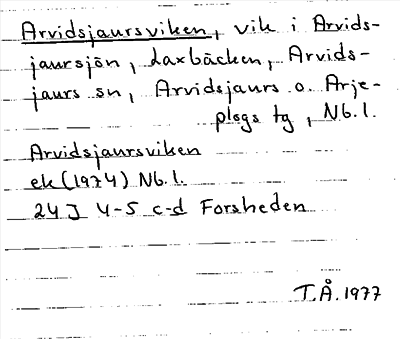 Arvidsjaursviken, vik i Arvids-
jaursjön, Laxbäcken, Arvids-
jaurs sn, Arvidsjaurs o. Arje-
plogs tg, Nb.l.
Arvidsjaursviken
ek (1974) Nb.l.
24J 4-5 c-d Forsheden
T.Å. 1977